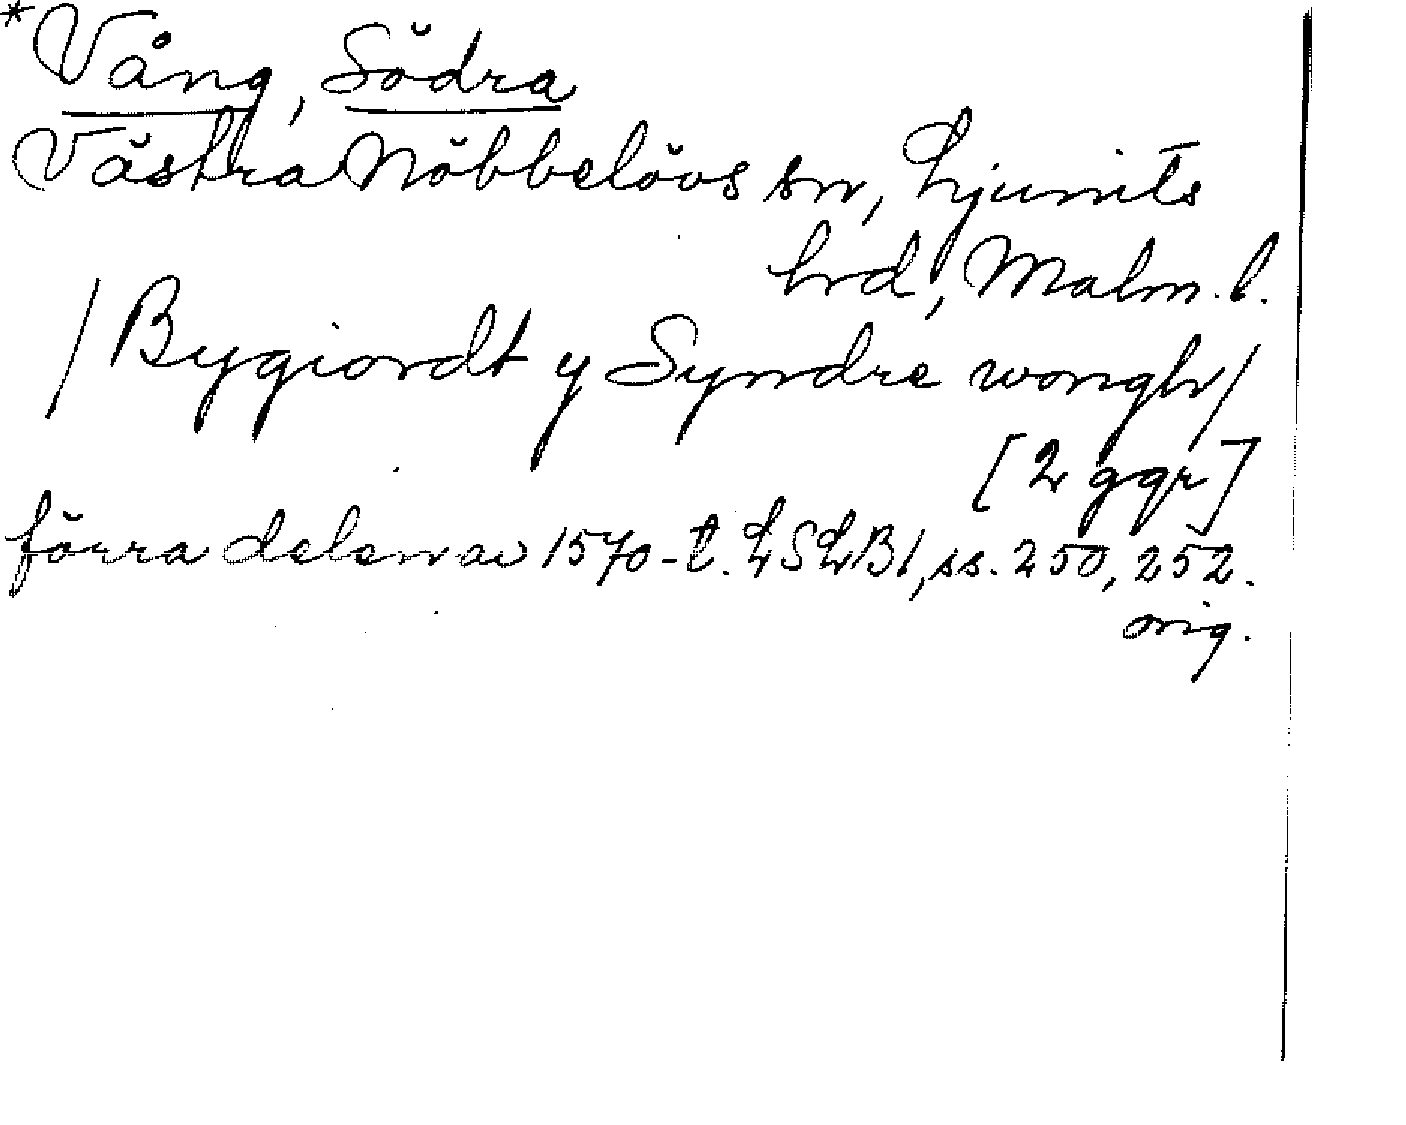 *Vång, Södra
Västra Nöbbelövs sn, Ljunits
hrd, Malm. l.
/Bygiordt y Syndre wongh/
[2 ggr]
förra delen av 1570-t. LSLB1, ss. 250, 252.
orig.